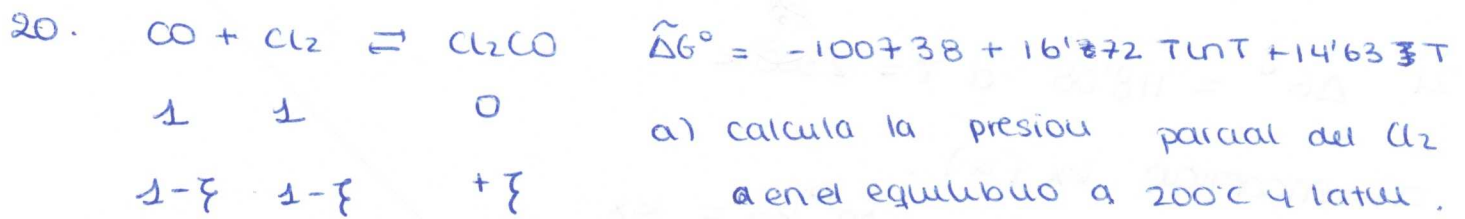 20. CO + Cl2 ⇌ Cl2CO Δ̃G° = -100738 + 16'772 TlnT + 14'63 T
1 1 0 a) calcula la presion parcial del Cl2
1-ξ 1-ξ +ξ en el equilibrio a 200°C y 1atm.